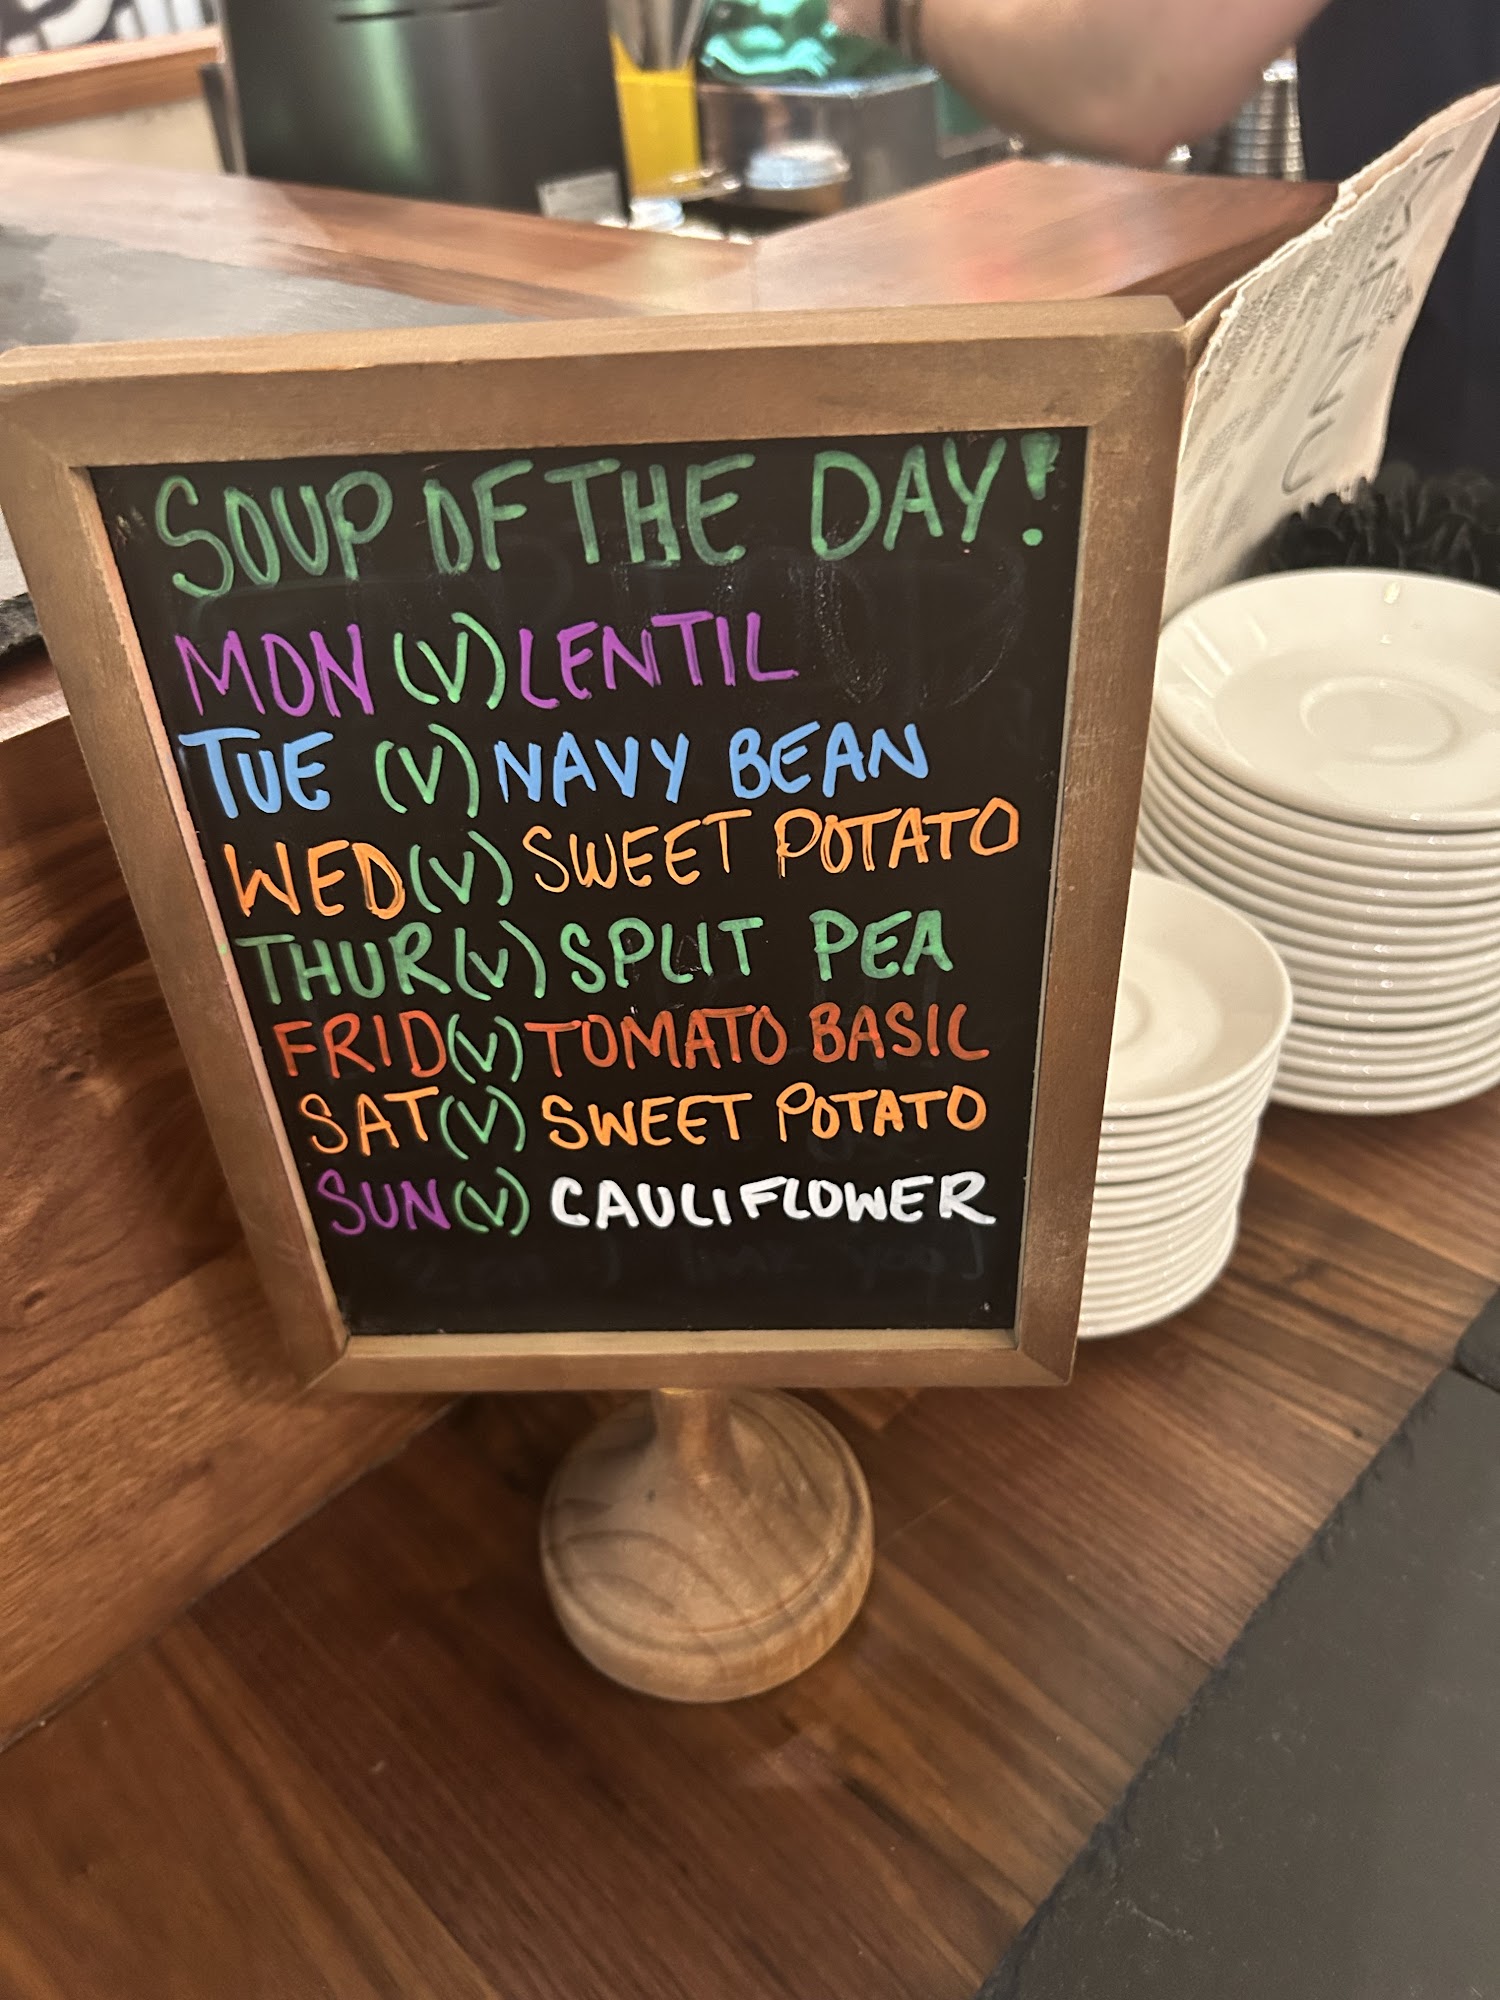 SOUP OF THE DAY!
MON (V) LENTIL
TUE (V) NAVY BEAN
WED (V) SWEET POTATO
THUR (V) SPLIT PEA
FRID (V) TOMATO BASIL
SAT (V) SWEET POTATO
SUN (V) CAULIFLOWER
MENU